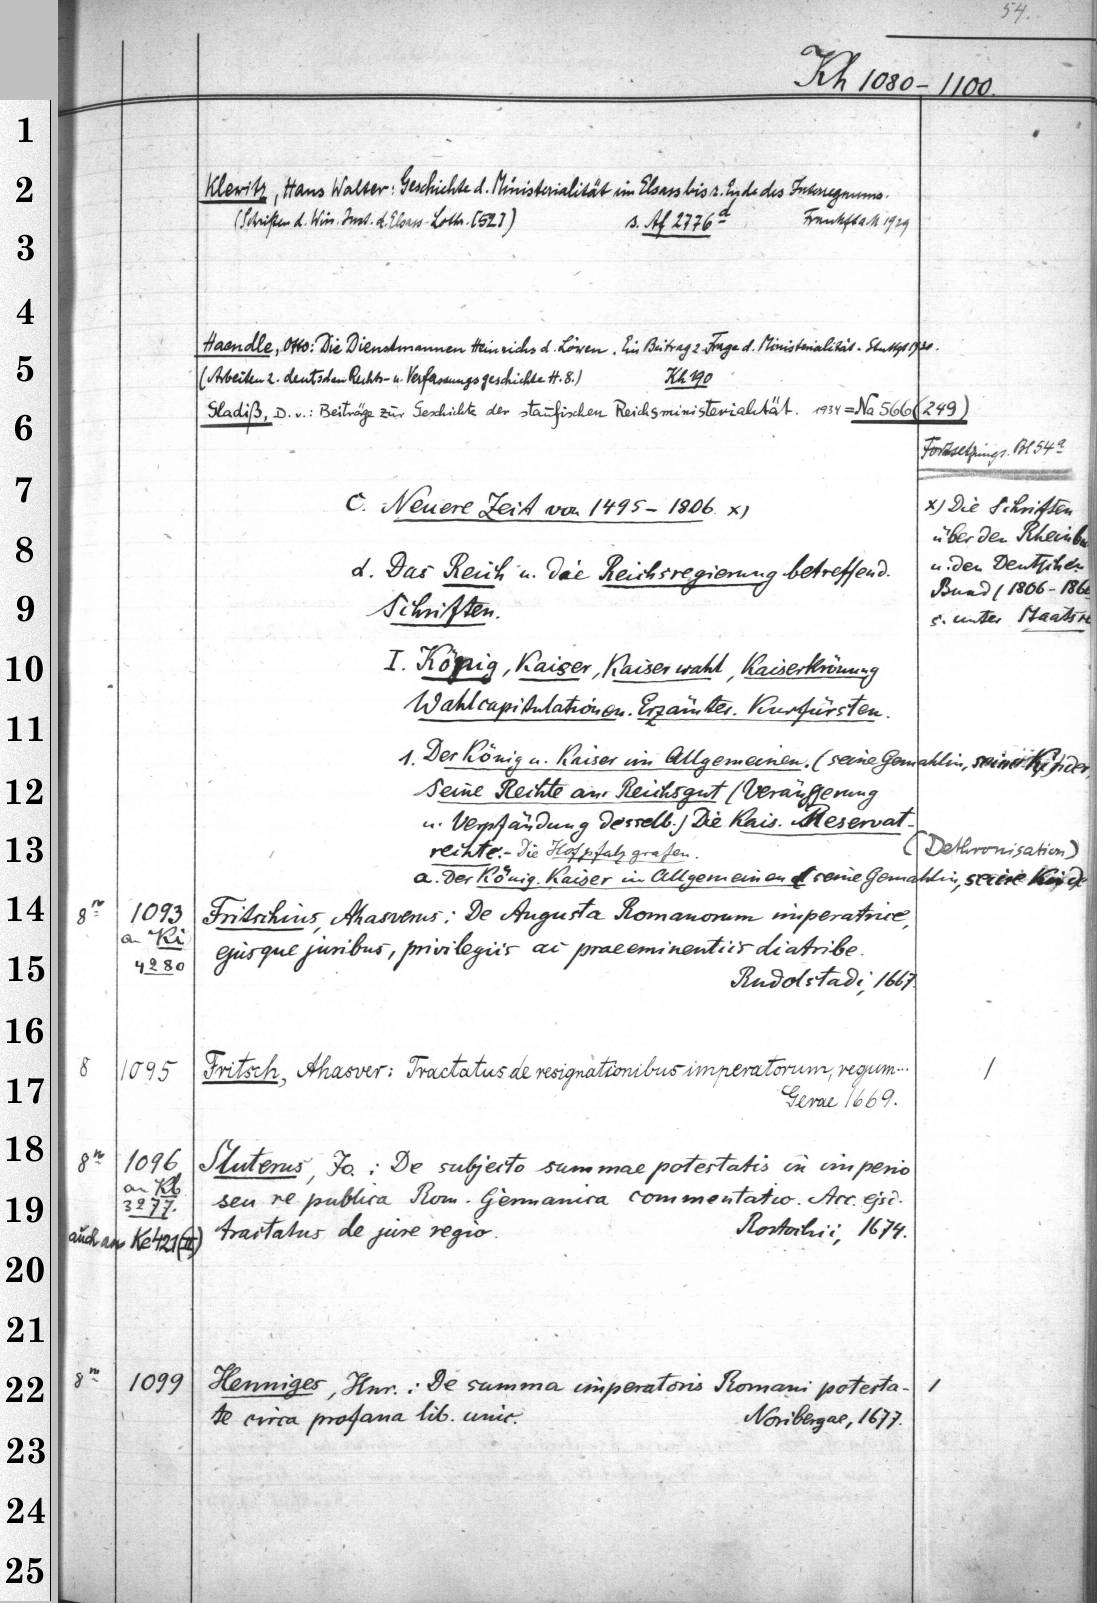 54.
Kh 1080-1100.
1
2
3
4
5
6
7
8
9
10
11
12
13
14
15
16
17
18
19
20
21
22
23
24
25
Klewitz, Hans Walter: Geschichte d. Ministerialität im Elsass bis z. Ende des Interregnums.
(Schriften d. Wiss. Inst. d. Elsass-Lothr. [52])   s. Af 2776 a   Frankf. a M 1929
Haendle, Otto: Die Dienstmannen Heinrichs d. Löwen. Ein Beitrag z. Frage d. Ministerialität. Stuttg. 1930.
(Arbeiten z. deutschen Rechts- u. Verfassungsgeschichte H. 8.)   Kh 190
Gladiß, D. v.: Beiträge zur Geschichte der staufischen Reichsministerialität. 1934 = Na 566 (249)
Fortsetzung s. Bl 54 a
C. Neuere Zeit von 1495-1806. x)
x) Die Schriften
über den Rheinbu
u. den Deutschen
Bund (1806-186
s. unter Staatsre
d. Das Reich u. die Reichsregierung betreffend.
Schriften.
I. König, Kaiser, Kaiserwahl, Kaiserkrönung
Wahlcapitulationen. Erzämter. Kurfürsten.
1. Der König u. Kaiser im Allgemeinen. (seine Gemahlin, seine Kinder,
Seine Rechte am Reichsgut (Veräußerung
u. Verpfändung desselb.) Die Kais. Reservat-
rechte. - Die Hofpfalzgrafen.   (Dethronisation)
a. Der König. Kaiser im Allgemeinen (seine Gemahlin, seine Kinde
8n   1093   Fritschius, Ahasverus: De Augusta Romanorum imperatrice,
an Ki   ejusque juribus, privilegiis ac praeeminentiis diatribe.
4280   Rudolstadi, 1667.
8   1095   Fritsch, Ahasver: Tractatus de resignationibus imperatorum, regum...   1
Gerae 1669.
8n   1096   Sluterus, Jo.: De subjecto summae potestatis in imperio
an Kb
3277.   seu re publica Rom. Germanica commentatio. Acc. ejsd.
auch an Ke 421 (II)   tractatus de jure regio.   Rostochii, 1674.
8n   1099   Henniges, Hnr.: De summa imperatoris Romani potesta-   1
te circa profana lib. unic.   Noribergae, 1677.